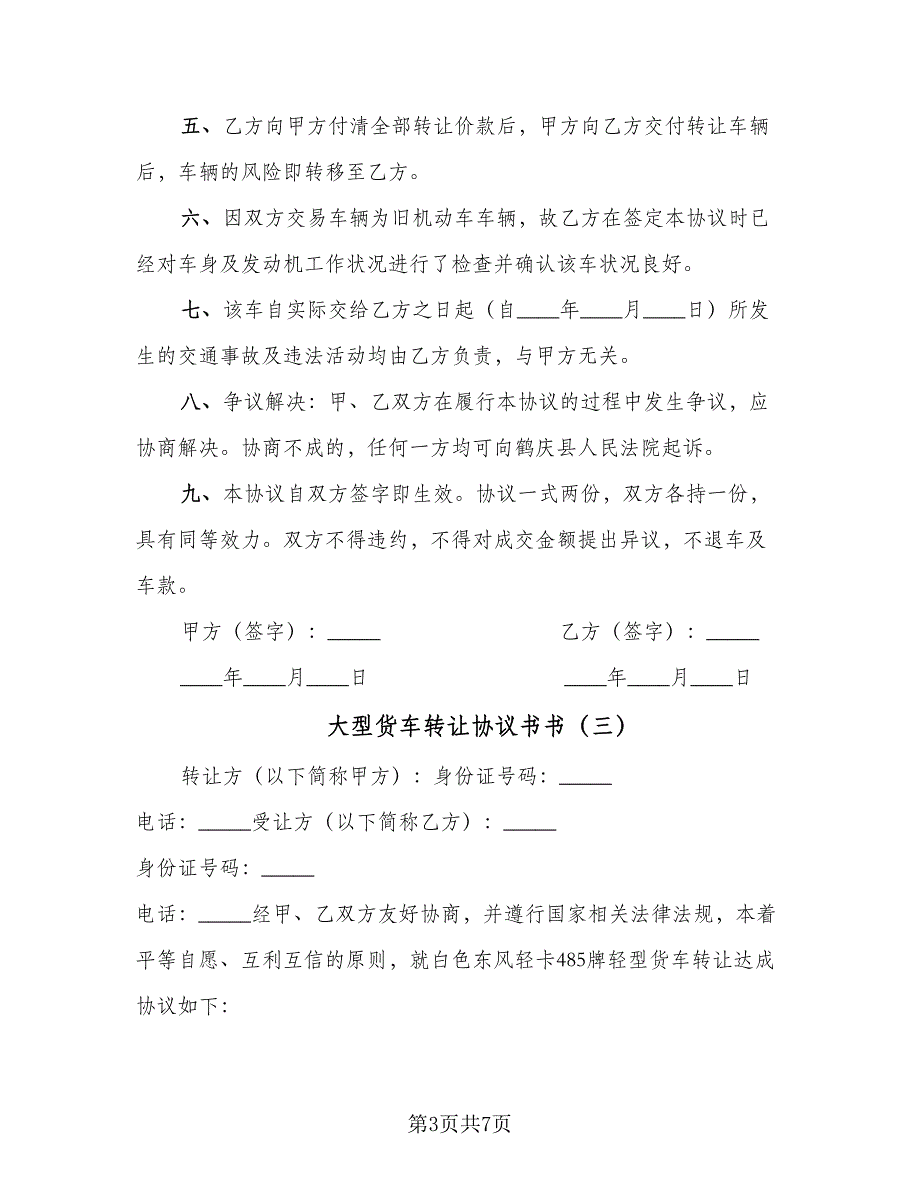 五、乙方向甲方付清全部转让价款后，甲方向乙方交付转让车辆
后，车辆的风险即转移至乙方。
六、因双方交易车辆为旧机动车车辆，故乙方在签定本协议时已
经对车身及发动机工作状况进行了检查并确认该车状况良好。
七、该车自实际交给乙方之日起（自____年____月____日）所发
生的交通事故及违法活动均由乙方负责，与甲方无关。
八、争议解决：甲、乙双方在履行本协议的过程中发生争议，应
协商解决。协商不成的，任何一方均可向鹤庆县人民法院起诉。
九、本协议自双方签字即生效。协议一式两份，双方各持一份，
具有同等效力。双方不得违约，不得对成交金额提出异议，不退车及
车款。
甲方（签字）：_____ 乙方（签字）：_____
____年____月____日 ____年____月____日
大型货车转让协议书书（三）
转让方（以下简称甲方）：身份证号码：_____
电话：_____受让方（以下简称乙方）：_____
身份证号码：_____
电话：_____经甲、乙双方友好协商，并遵行国家相关法律法规，本着
平等自愿、互利互信的原则，就白色东风轻卡485牌轻型货车转让达成
协议如下：
第3页共7页